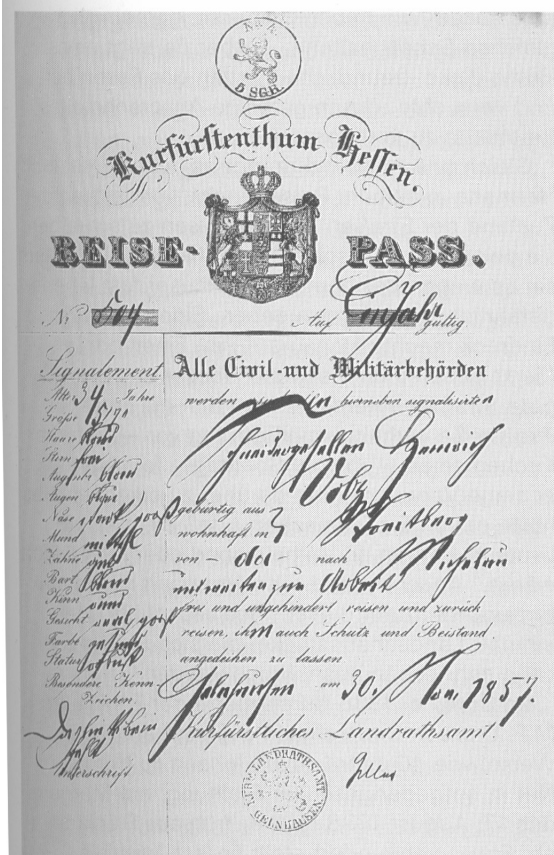 5 SGH.
Kurfürstenthum Hessen.
REISE-PASS.
No 504 Auf Ein Jahr gültig
Signalement
Alter 34 Jahre
Größe 5/7
Haare blond
Stirn frei
Augenbr blond
Augen blau
Nase groß
Mund mittel
Zähne gut
Bart blond
Kinn rund
Gesicht oval
Farbe gesund
Statur
Besondere Kennzeichen
Unterschrift
Alle Civil- und Militärbehörden
werden hierneben signalisirten
Schneidergesellen Heinrich
Volz
gebürtig aus
wohnhaft in } Breitborn
von - dort nach
zur Arbeit
frei und ungehindert reisen und zurück
reisen, ihm auch Schutz und Beistand
angedeihen zu lassen
Gelnhausen am 30. Nov. 1857.
Kurfürstliches Landrathsamt
KURH. LANDRATHSAMT GELNHAUSEN